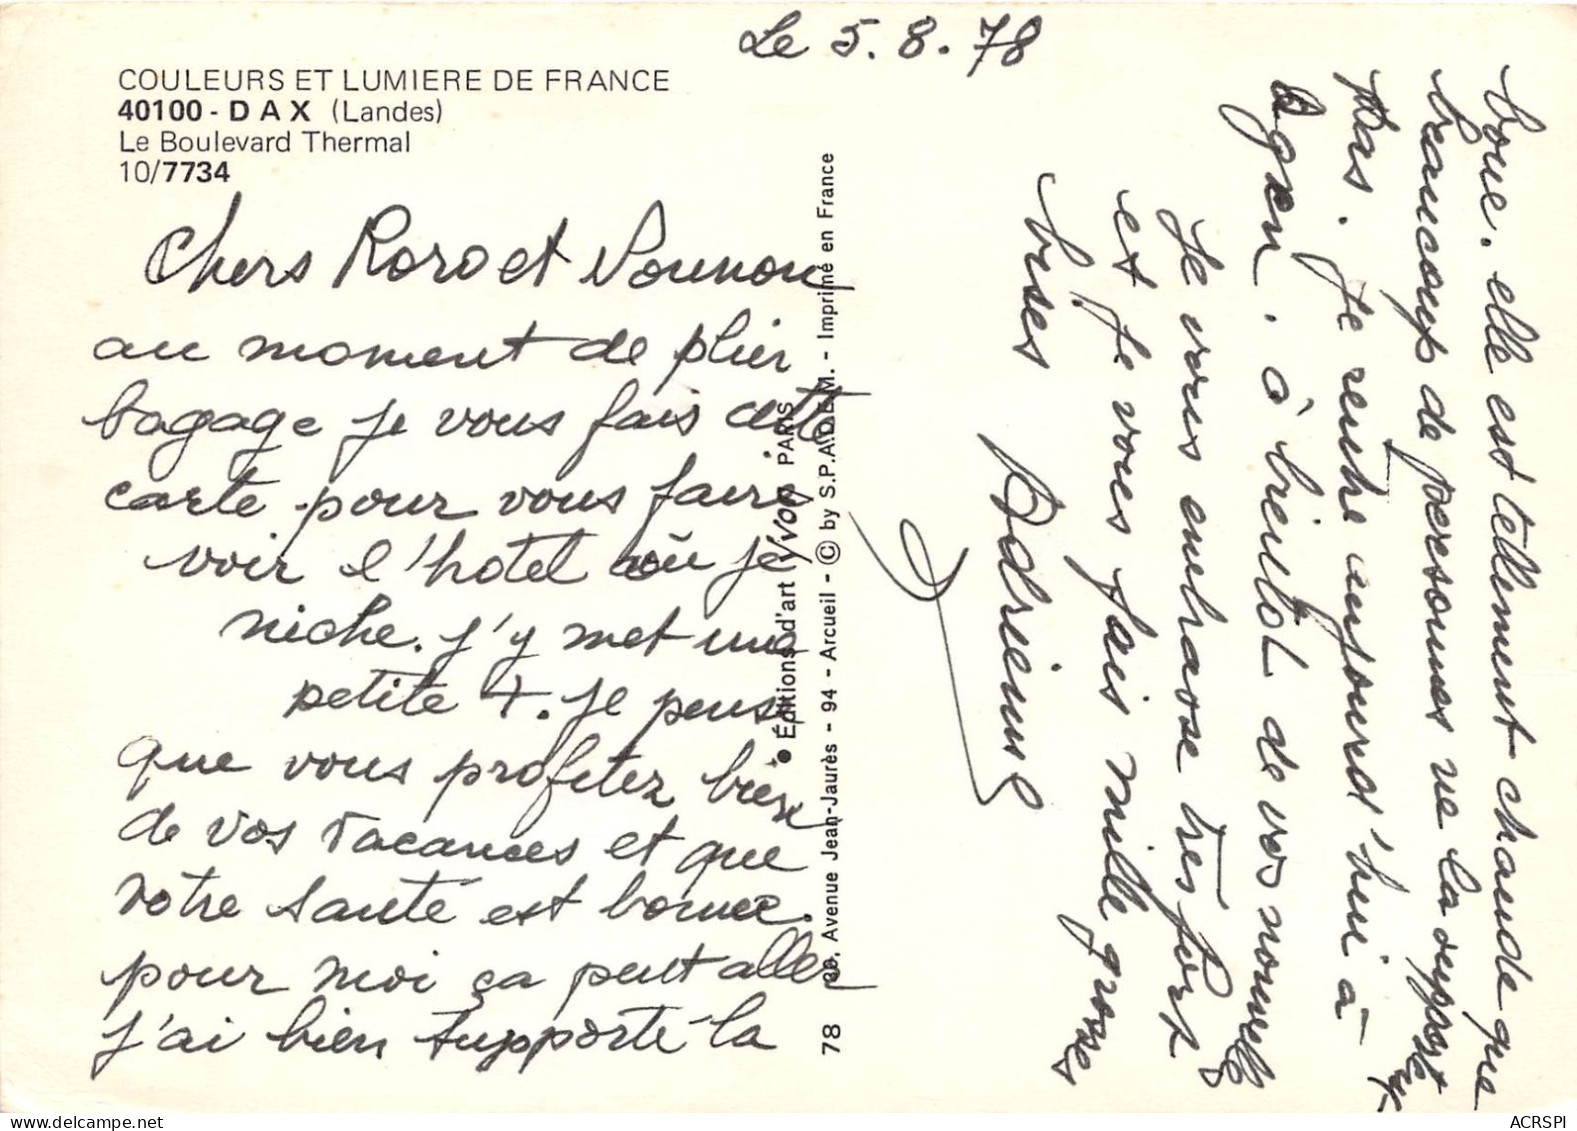 Le 5.8.78
COULEURS ET LUMIERE DE FRANCE
40100 - DAX (Landes)
Le Boulevard Thermal
10/7734
Chers Roro et Nounou
au moment de plier
bagage je vous fais cette
carte pour vous faire
voir l'hotel où je
niche. j'y met une
petite +. Je pense
que vous profitez bien
de vos vacances et que
votre santé est bonne.
pour moi ça peut aller
j'ai bien supporté la
boue. elle est tellement chaude que
beaucoup de personnes ne la supporte
pas. Je rentre aujourd'hui à
Agen. à bientôt de vos nouvelles
Je vous embrasse très fort
et je vous fais mille grosses
bises
Adrienne
● Éditions d'art YVON PARIS
78 39, Avenue Jean-Jaurès - 94 - Arcueil - © by S.P.A.D.E.M. - Imprimé en France
ACRSPI